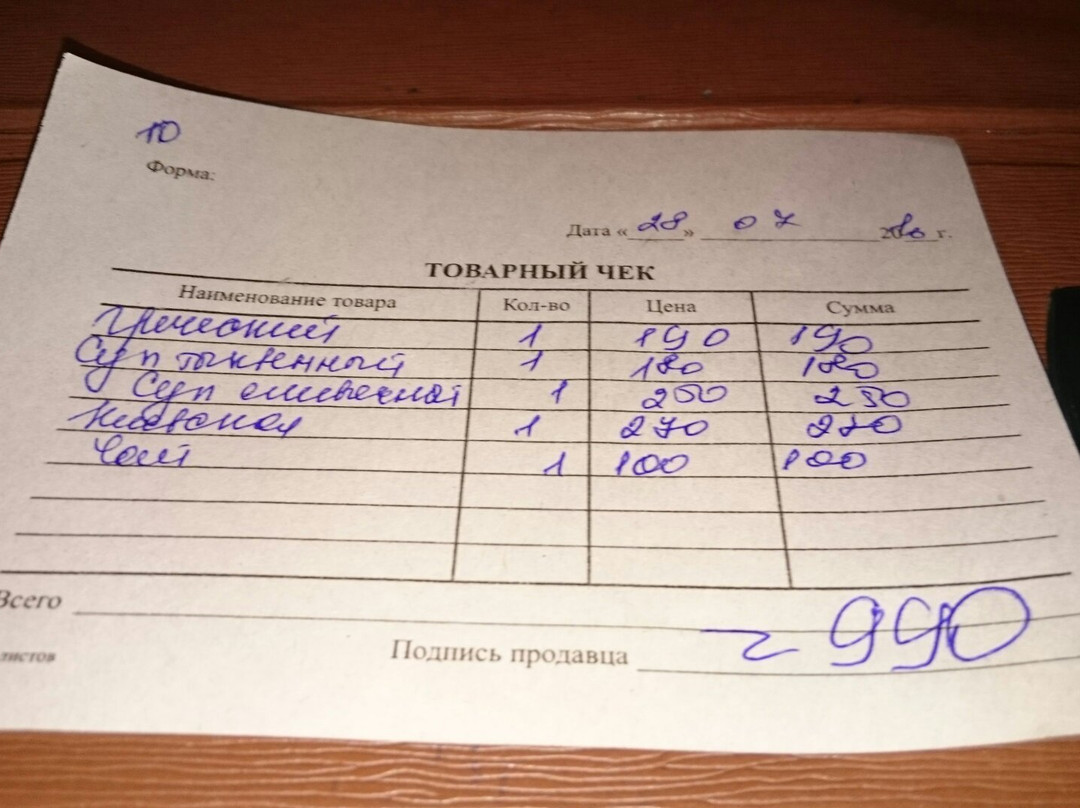 10
Форма:
Дата «28» 07 20 г.
ТОВАРНЫЙ ЧЕК
Наименование товара Кол-во Цена Сумма
Греческий 1 190 190
Суп тыквенный 1 180 180
Суп сливочной 1 250 250
1 270 270
Чай 1 100 100
Всего
Подпись продавца 990
листов